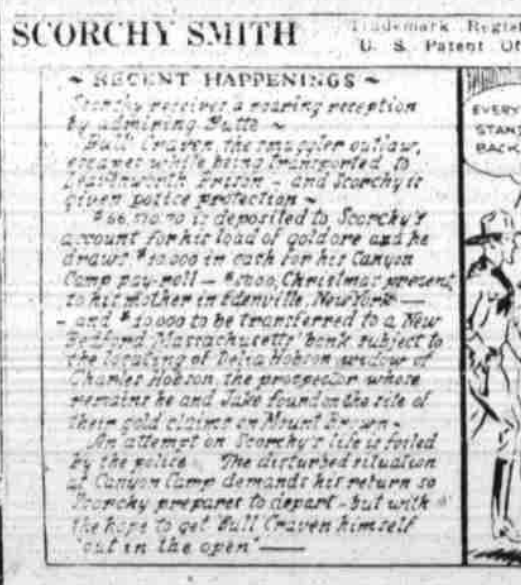 SCORCHY SMITH
Trademark Regist
U. S. Patent Of
~ RECENT HAPPENINGS ~
Scorchy receives a roaring reception
by admiring Butte ~
"Bull" Craven, the smuggler outlaw,
escapes while being transported to
Leavenworth Prison - and Scorchy is
given police protection ~
is deposited to Scorchy's
account for his load of gold ore and he
draws $10,000 in cash for his Canyon
Camp pay-roll — $5000, Christmas present
to his mother in Edenville, New York —
- and $10,000 to be transferred to a New
Bedford Massachusetts' bank subject to
the locating of Delia Hobson widow of
Charles Hobson, the prospector whose
remains he and Jake found on the site of
their gold claims on Mount Brown -
An attempt on Scorchy's life is foiled
by the police. The disturbed situation
at Canyon Camp demands his return so
Scorchy prepares to depart - but with
the hope to get Bull Craven himself
"out in the open" —
EVERY
STAN
BACK